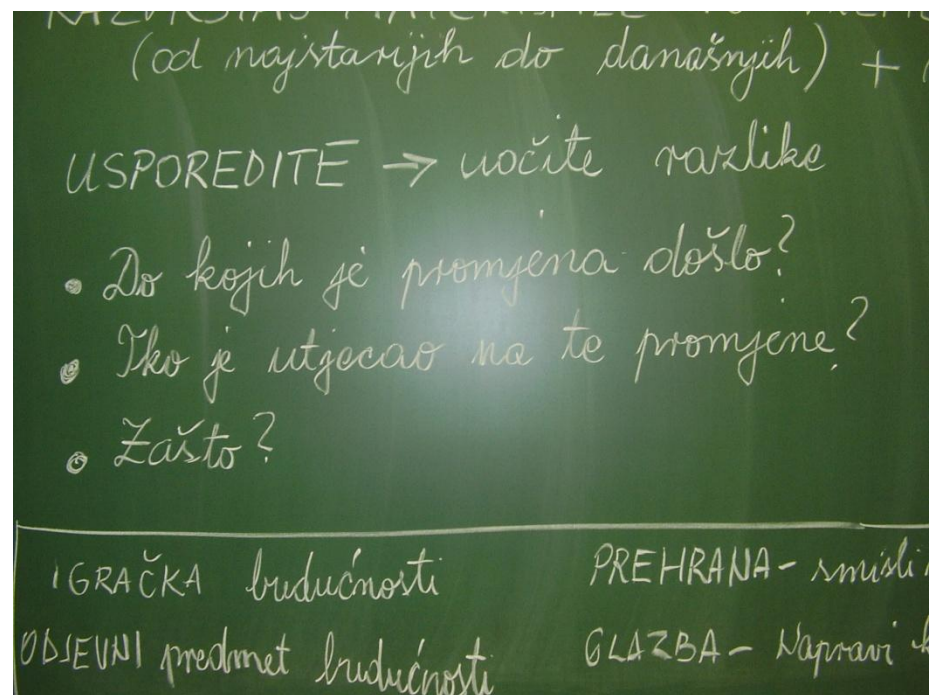 (od najstarijih do današnjih) +
USPOREDITE → uočite razlike
• Do kojih je promjena došlo?
• Tko je utjecao na te promjene?
• Zašto?
IGRAČKA budućnosti
PREHRANA - smisli
ODJEVNI predmet budućnosti
GLAZBA - Napravi